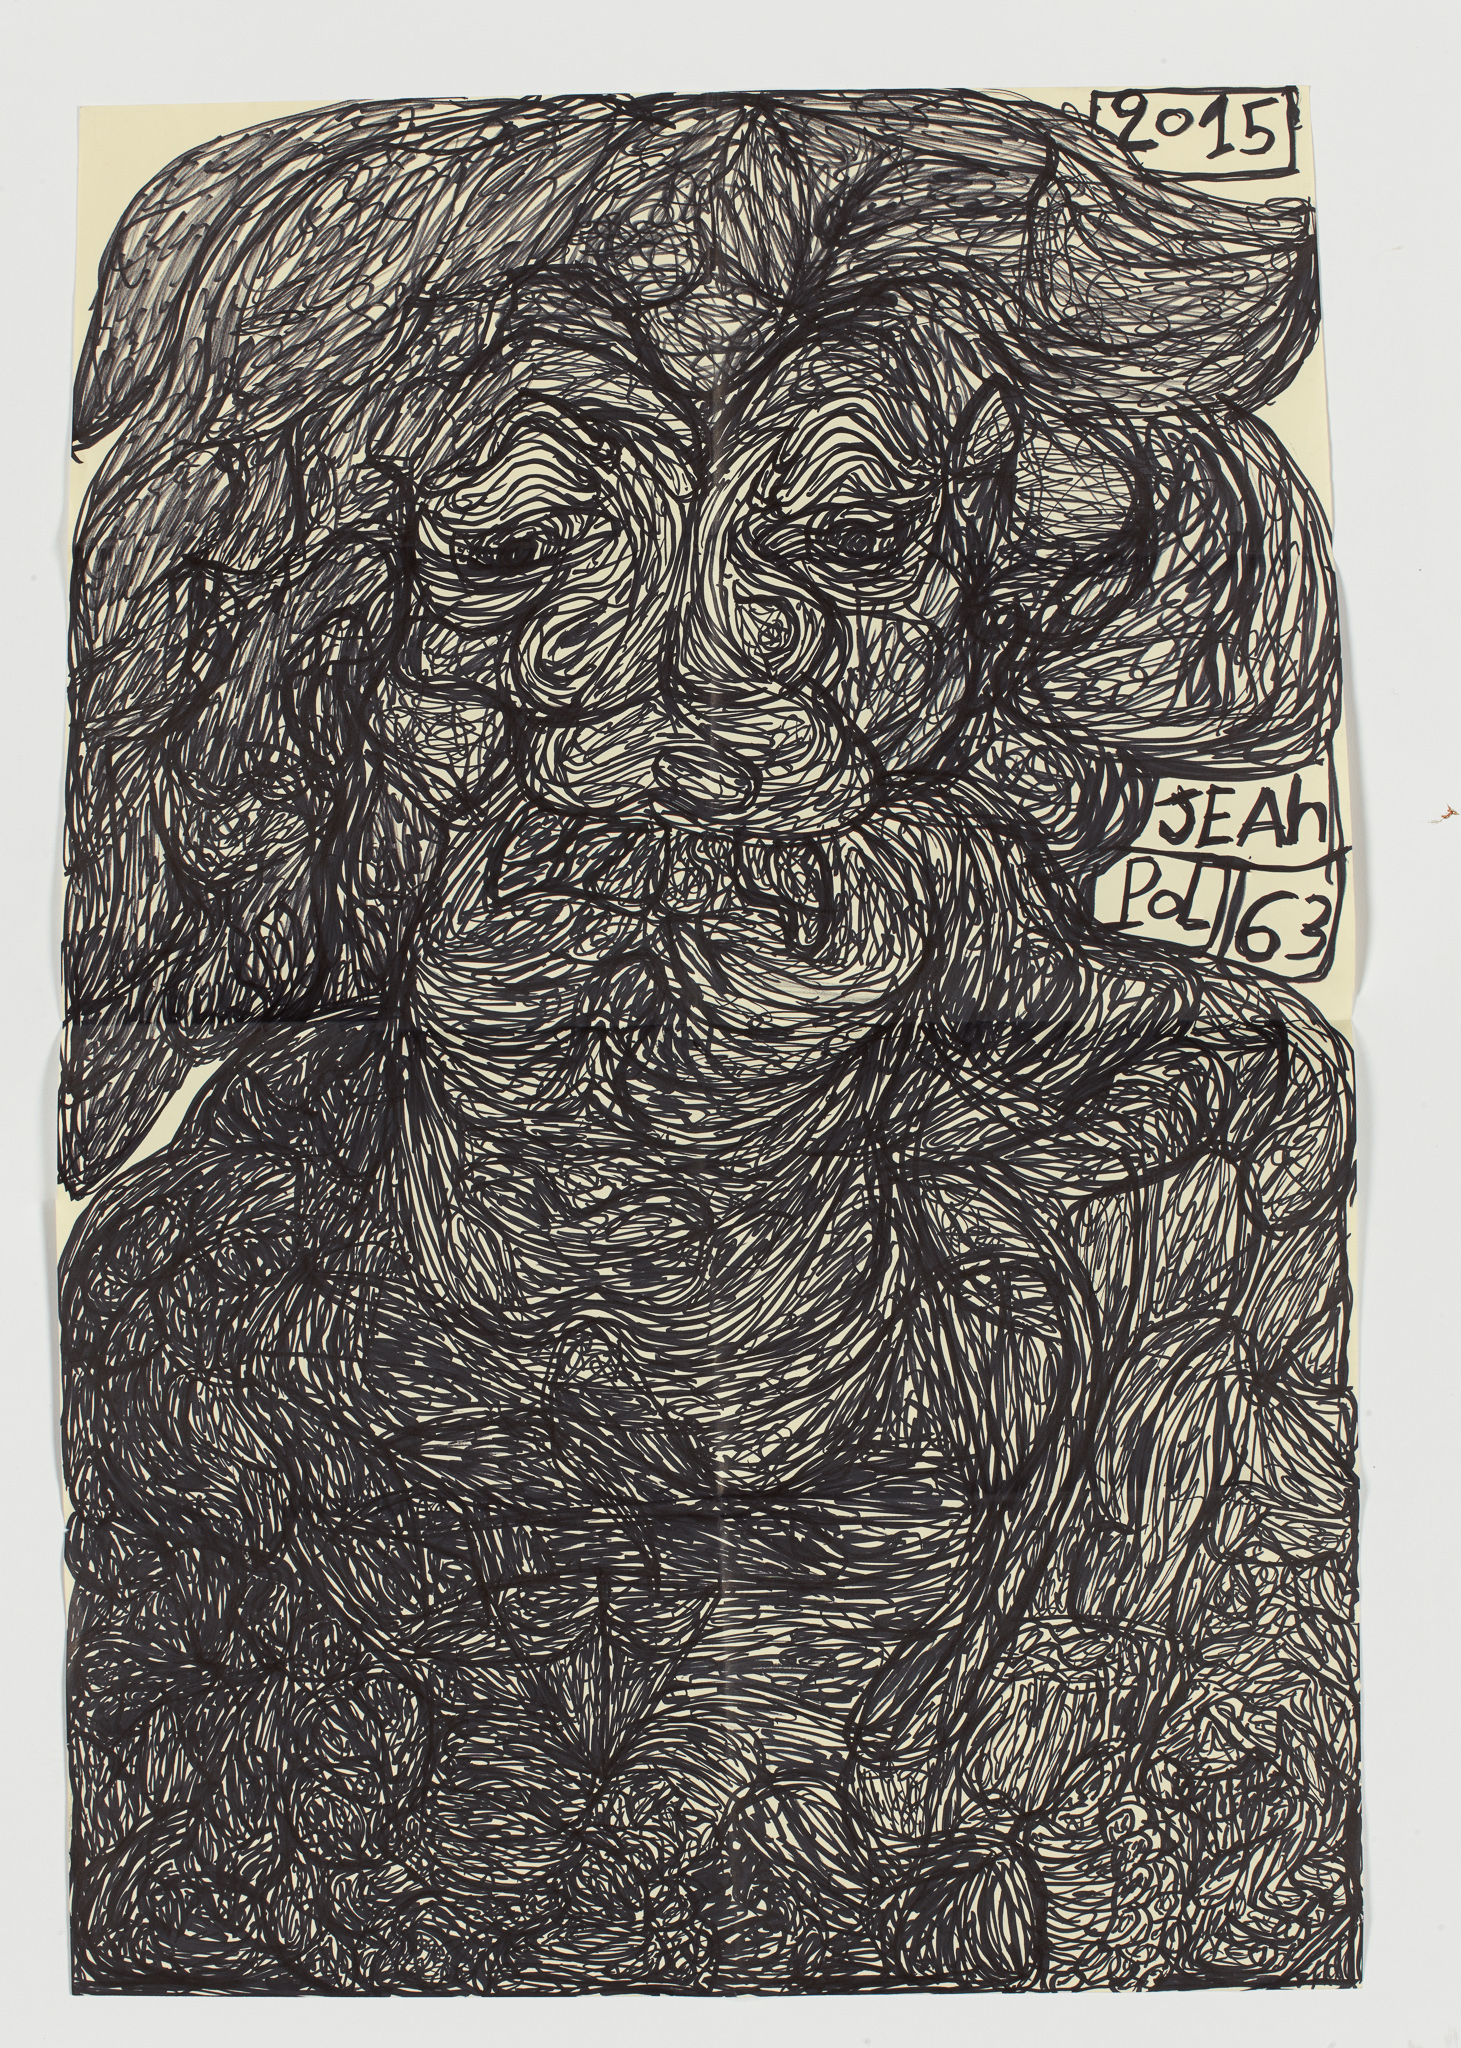 2015
JEAh
PoL 63